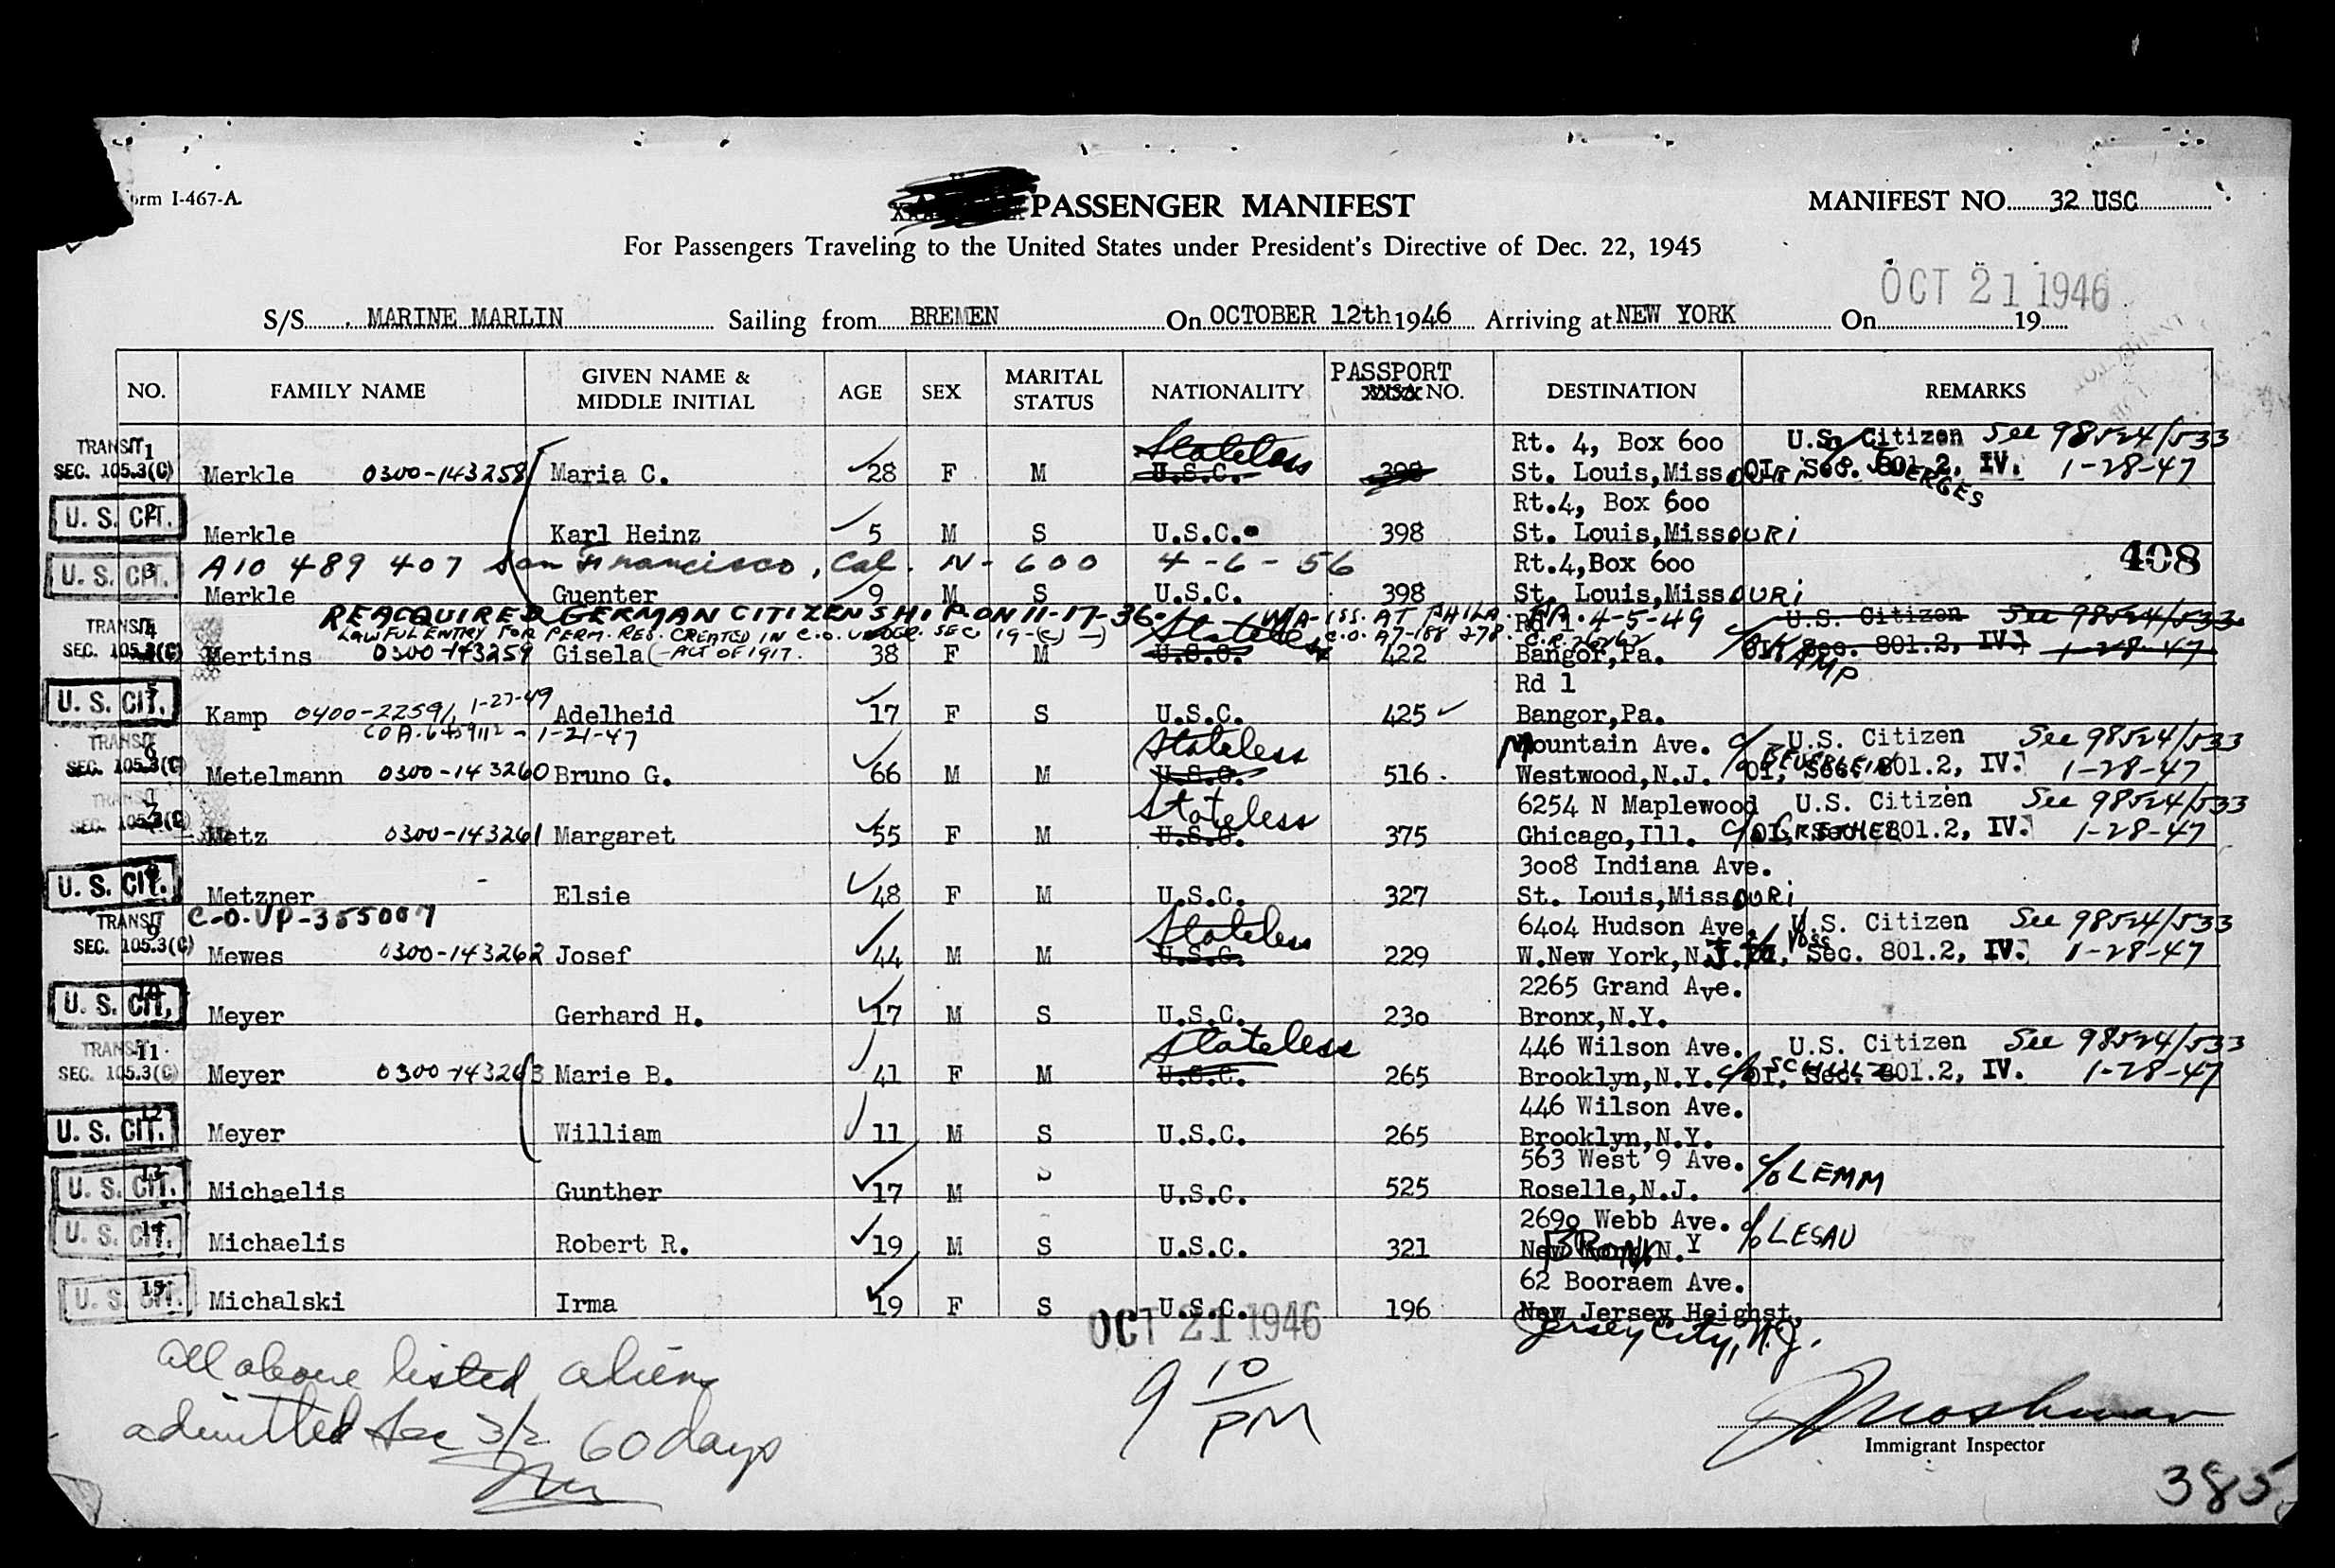 Form I-467-A
PASSENGER MANIFEST
MANIFEST NO. 32 USC
For Passengers Traveling to the United States under President's Directive of Dec. 22, 1945
OCT 21 1946
S/S MARINE MARLIN Sailing from BREMEN On OCTOBER 12th 1946 Arriving at NEW YORK On 19
NO. FAMILY NAME GIVEN NAME & MIDDLE INITIAL AGE SEX MARITAL STATUS NATIONALITY PASSPORT NO. DESTINATION REMARKS
TRANSIT 1 Stateless Rt. 4, Box 600 U.S. Citizen See 98524/533
SEC. 105.3(C) Merkle 0300-143258 Maria C. 28 F M U.S.C. 398 St. Louis, Missouri OI, Sec. 801.2, IV. 1-28-47
JOERGES
U. S. CIT. 2 Rt.4, Box 600
Merkle Karl Heinz 5 M S U.S.C. 398 St. Louis,Missouri
U. S. CIT. 3 A10 489 407 San Francisco, Cal. N-600 4-6-56 Rt.4,Box 600 408
Merkle Guenter 9 M S U.S.C. 398 St. Louis,Missouri
REACQUIRED GERMAN CITIZENSHIP ON 11-17-36. ISS. AT PHILA. PA. 4-5-49 U.S. Citizen See 98524/533
TRANSIT 4 LAWFUL ENTRY FOR PERM. RES. CREATED IN C.O. UNDER. SEC 19-(c) Stateless C.O. A7-188 278. C.R. 26262 Rd 1
SEC. 105.3(C) Mertins 0300-143259 Gisela -ACT OF 1917. 38 F M U.S.C. 422 Bangor,Pa. c/o KAMP OI, Sec. 801.2, IV. 1-28-47
U. S. CIT. 5 Rd 1
Kamp 0400-22591, 1-27-49 Adelheid 17 F S U.S.C. 425 Bangor,Pa.
TRANSIT 6 1-21-47 Stateless Mountain Ave. c/o U.S. Citizen See 98524/533
SEC. 105.3(C) Metelmann 0300-143260 Bruno G. 66 M M U.S.C. 516 Westwood,N.J. OI, Sec. 801.2, IV. 1-28-47
TRANSIT 7 Stateless 6254 N Maplewood U.S. Citizen See 98524/533
SEC. 105.3(C) Metz 0300-143261 Margaret 55 F M U.S.C. 375 Chicago,Ill. c/o OI, Sec. 801.2, IV. 1-28-47
U. S. CIT. 8 3008 Indiana Ave.
Metzner - Elsie 48 F M U.S.C. 327 St. Louis,Missouri
TRANSIT 9 C-O.VP-355007 Stateless 6404 Hudson Ave. c/o Voss U.S. Citizen See 98524/533
SEC. 105.3(C) Mewes 0300-143262 Josef 44 M M U.S.C. 229 W.New York,N.J. OI, Sec. 801.2, IV. 1-28-47
U. S. CIT. 10 2265 Grand Ave.
Meyer Gerhard H. 17 M S U.S.C. 230 Bronx,N.Y.
TRANSIT 11 Stateless 446 Wilson Ave. U.S. Citizen See 98524/533
SEC. 105.3(C) Meyer 0300-143263 Marie B. 41 F M U.S.C. 265 Brooklyn,N.Y. c/o SCHULZ OI, Sec. 801.2, IV. 1-28-47
U. S. CIT. 12 446 Wilson Ave.
Meyer William 11 M S U.S.C. 265 Brooklyn,N.Y.
U. S. CIT. 13 563 West 9 Ave.
Michaelis Gunther 17 M S U.S.C. 525 Roselle,N.J. c/o LEMM
U. S. CIT. 14 2690 Webb Ave. c/o LESAU
Michaelis Robert R. 19 M S U.S.C. 321 New York N.Y BRONX
U. S. CIT. 15 62 Booraem Ave.
Michalski Irma 19 F S U.S.C. 196 New Jersey Heighst,
Jersey City, N.J.
OCT 21 1946
All above listed aliens
admitted Sec 3/2 60 days
9 10/PM
Immigrant Inspector
385